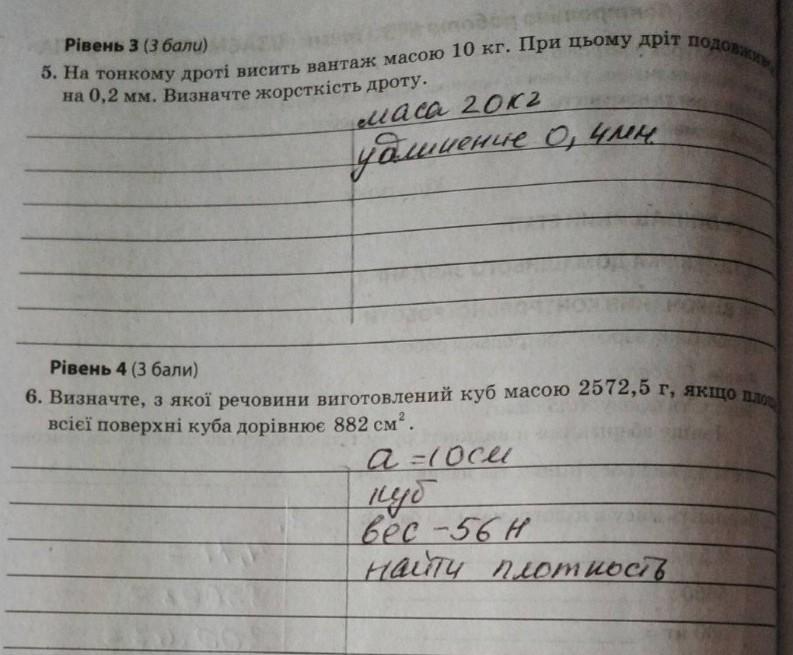 Рівень 3 (3 бали)
5. На тонкому дроті висить вантаж масою 10 кг. При цьому дріт
на 0,2 мм. Визначте жорсткість дроту.
маса 20кг
удлинение 0,4мм
Рівень 4 (3 бали)
6. Визначте, з якої речовини виготовлений куб масою 2572,5 г, якщо
всієї поверхні куба дорівнює 882 см².
a =10см
куб
вес -56 Н
найти плотность